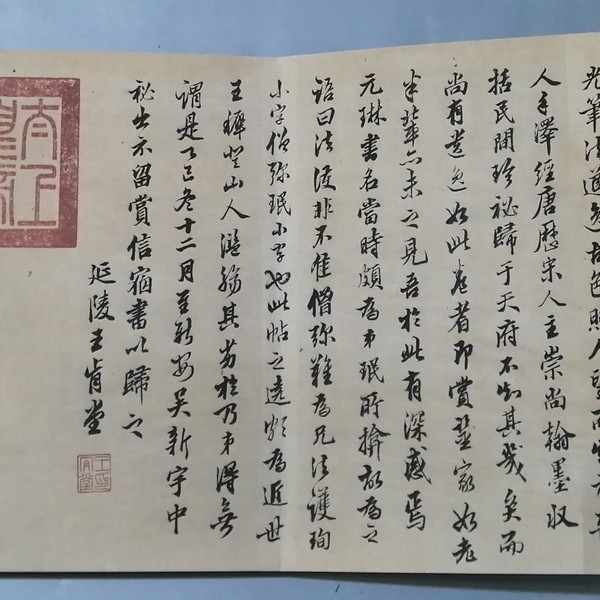 光筆法遒逸古色照人望而知為晉
人手澤經唐歷宋人主崇尚翰墨収
括民間珍秘歸于天府不知其幾矣而
尚有遺逸如此卷者即賞鑒家如老
米輩亦未之見吾於此有深感焉
元琳書名當時頗為弟珉所揜故為之
語曰法護非不佳僧弥難為兄法護珣
小字僧弥珉小字也此帖之遠頗為近世
王穉登山人其劣於乃弟得無
謂是乙巳冬十二月至新安吴新宇中
秘出示留賞信宿書以歸之
延陵王肯堂
王肯堂
太上皇帝